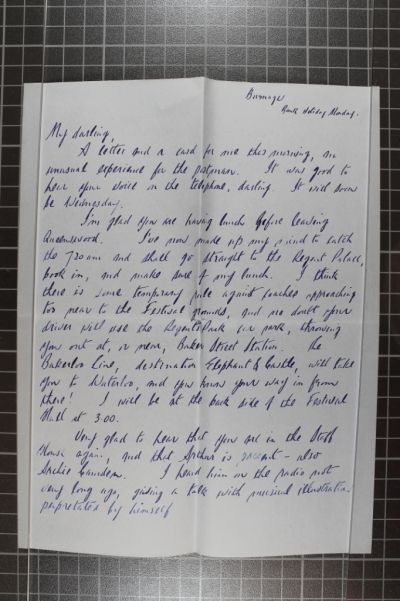 Burnage
Bank Holiday Monday.
My darling,
A letter and a card for me this morning, an
unusual experience for the postman. It was good to
hear your voice on the telephone, darling. It will soon
be Wednesday.
I'm glad you are having lunch before leaving
Queenswood. I've now made up my mind to catch
the 7.30 am and shall go straight to the Regent Palace,
book in, and make sure of my lunch. I think
there is some temporary rule against coaches approaching
too near to the Festival grounds, and no doubt your
driver will use the Regents Park car park, throwing
you out at, or near, Baker Street Station. The
Bakerloo Line, destination Elephant & Castle, will take
you to Waterloo, and you know your way in from
there! I will be at the back side of the Festival
Hall at 3.00.
Very glad to hear that you are in the Staff
House again, and that Archie is - also
Archie Camden. I heard him on the radio not
very long ago, giving a talk with musical illustrations
perpetrated by himself